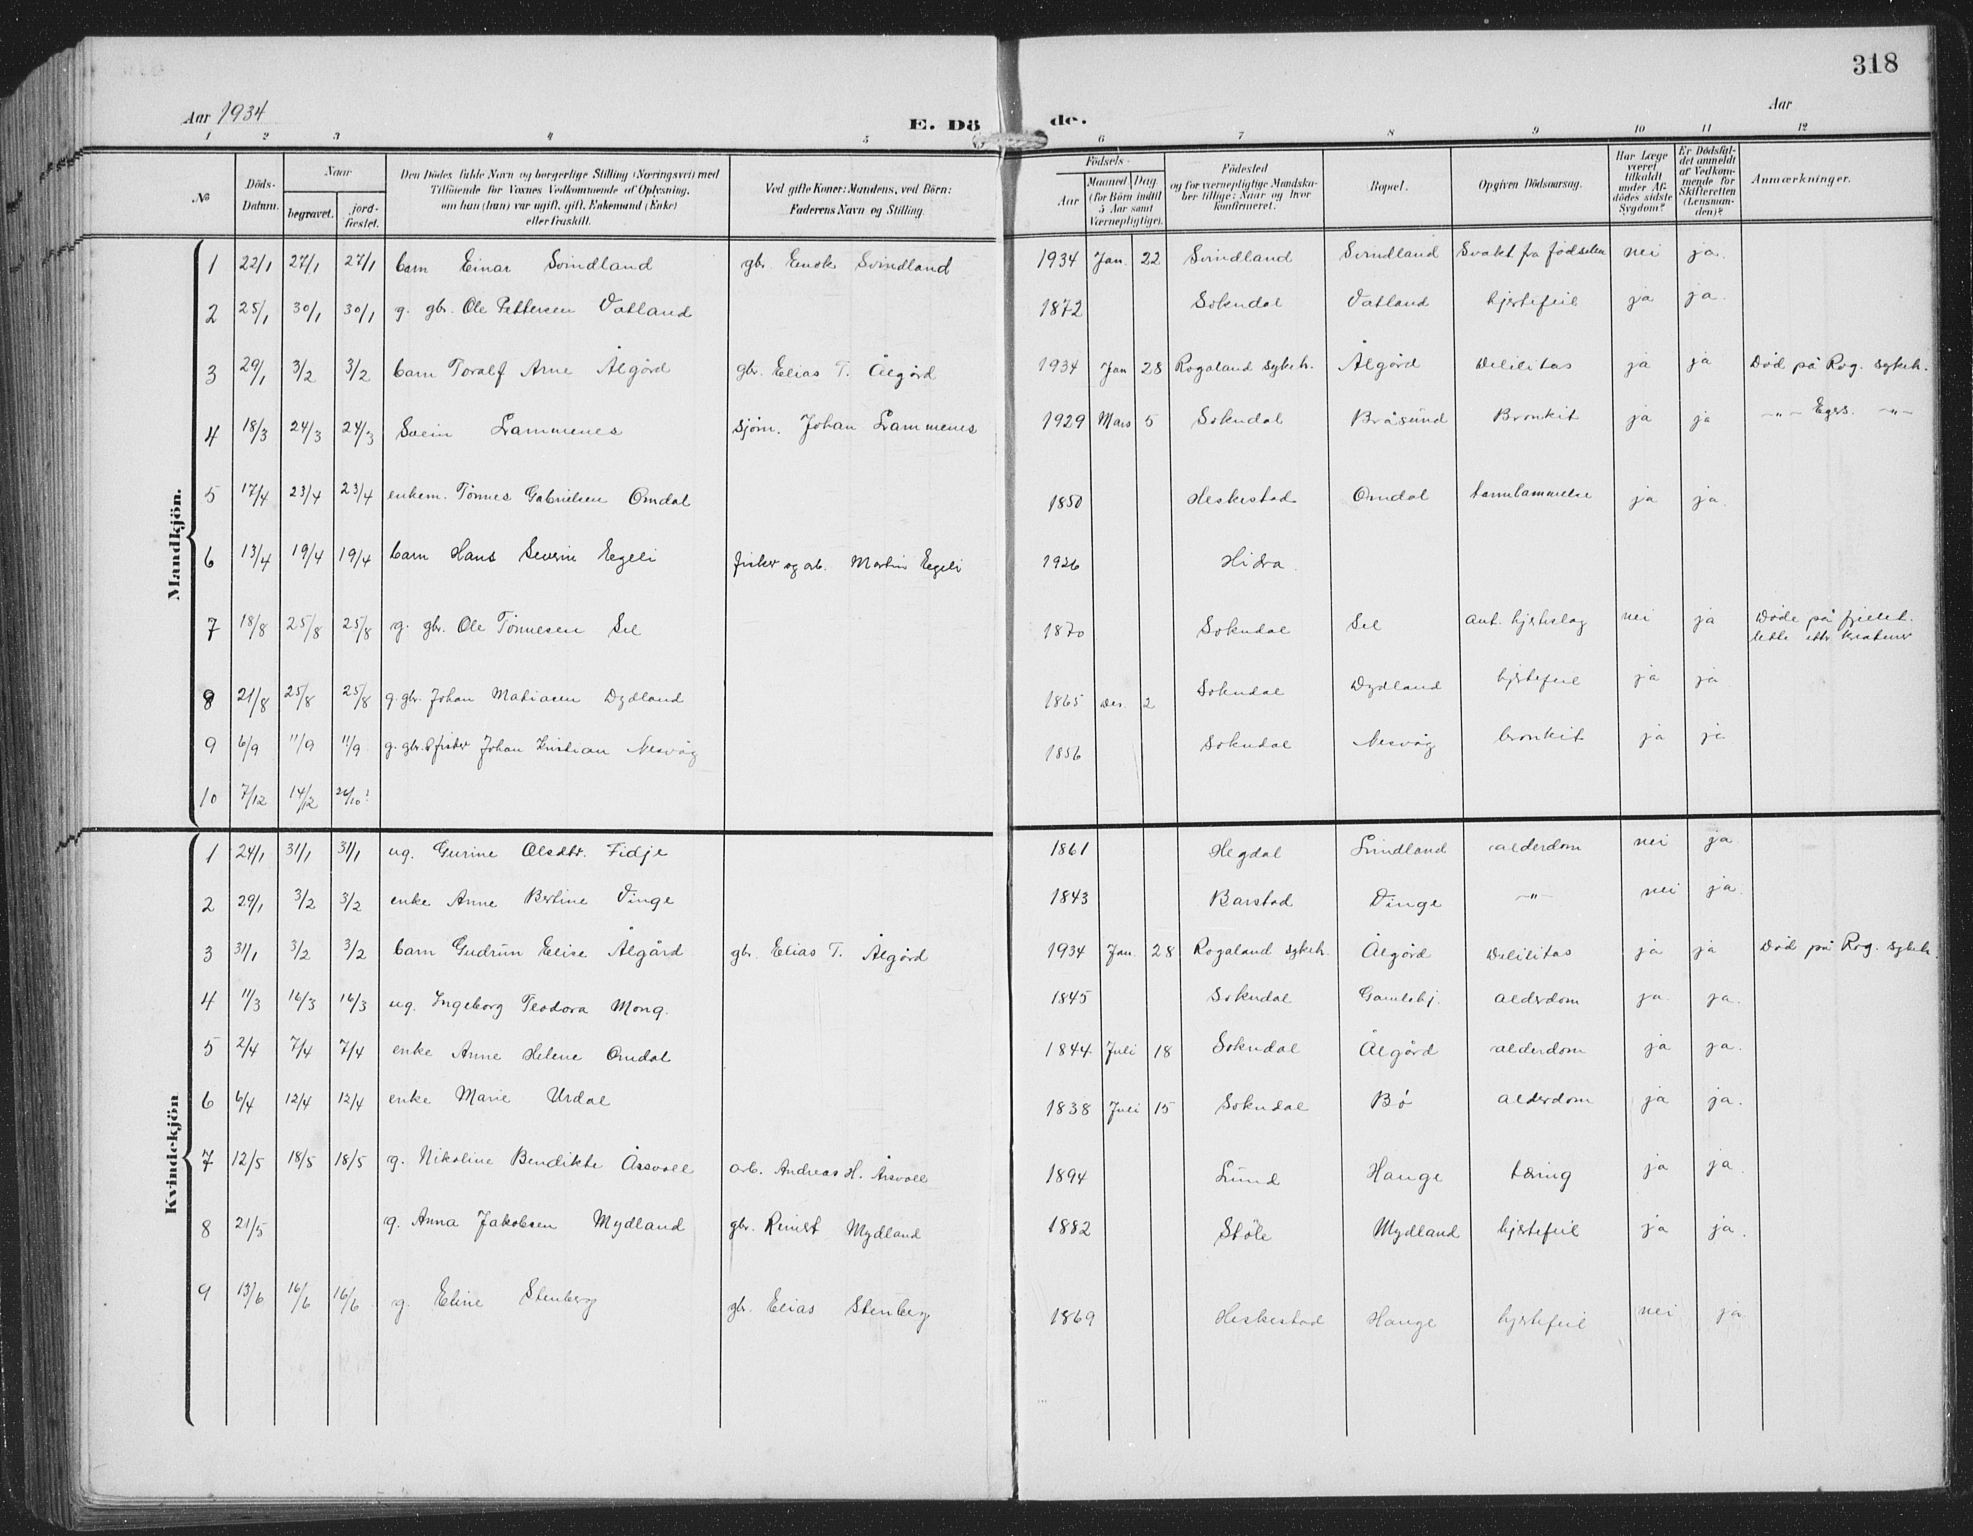 318
Aar 1934
E. Dö de.
Aar
1 2 3 4 5 6 7 8 9 10 11 12
№ Döds-Datum. Naar begravet. jord-fæstet. Den Dödes fulde Navn og borgerlige Stilling (Næringsvei) med Tilföiende for Voxnes Vedkommende af Oplysning, om han (hun) var ugift, gift, Enkemand (Enke) eller fraskilt. Ved gifte Koner: Mandens, ved Börn: Faderens Navn og Stilling. Födsels- Aar Maaned Dag (for Börn indtil 5 Aar samt Værnepligtige). Födested og for værnepligtige Mandskaber tillige: Naar og hvor konfirmeret. Bopæl. Opgiven Dödsaarsag. Har Læge været tilkaldt under Afdödes sidste Sygdom? Er Dödsfaldet anmeldt af Vedkommende for Skifteretten (Lensmanden)? Anmærkninger.
Mandkjön.
1 22/1 27/1 27/1 barn Einar Svindland gbr. Enok Svindland 1934 Jan. 22 Svindland Svindland Svakt fra fødselen nei ja.
2 25/1 30/1 30/1 g. gbr. Ole Pettersen Vatland 1872 Sokndal Vatland hjertefeil ja ja.
3 29/1 3/2 3/2 barn Toralf Arne Ålgård gbr. Elias T. Ålgård 1934 Jan 28 Rogaland sykeh. Ålgård Debilitas ja ja Død på Rog. sykeh.
4 18/3 24/3 24/3 Svein Lammenes sjøm. Johan Lammenes 1929 Mars 5 Sokndal Bråsund Bronkit ja ja -"- Egers. -"-
5 17/4 23/4 23/4 enkem. Tønnes Gabrielsen Omdal 1850 Heskestad Omdal ja ja.
6 13/4 19/4 19/4 barn Hans Severin Eegeli fisker og arb. Martin Eegeli 1926 Hidra.
7 18/8 25/8 25/8 g. gbr. Ole Tønnesen Sel 1870 Sokndal Sel ant. hjerteslag nei ja Døde på fjellet. lette etter kreaturer
8 21/8 25/8 25/8 g. gbr. Johan Matiasen Dydland 1865 Des. 2 Sokndal Dydland hjertefeil ja ja
9 6/9 11/9 11/9 g. gbr. & fisker Johan Kristian Nesvåg 1856 Sokndal Nesvåg bronkit ja ja
10 7/12 14/12
Kvindekjön
1 24/1 31/1 31/1 ug. Gurine Olsdtr. Fidje 1861 Hegdal Svindland alderdom nei ja.
2 29/1 3/2 3/2 enke Anne Bertine Vinge 1843 Barstad Vinge -"- nei ja.
3 31/1 3/2 3/2 barn Gudrun Elise Ålgård gbr. Elias T. Ålgård 1934 Jan. 28 Rogaland sykeh. Ålgård Debilitas ja ja Død på Rog. sykeh.
4 11/3 16/3 16/3 ug. Ingeborg Teodora Mong. 1845 Sokndal Gamlehj. alderdom ja. ja.
5 2/4 7/4 7/4 enke Anne Helene Omdal 1844 Juli 18 Sokndal Ålgård alderdom ja ja.
6 6/4 12/4 12/4 enke Marie Urdal 1838 Juli 15 Sokndal Bø alderdom ja ja.
7 12/5 18/5 18/5 g. Nikoline Bendikte Årsvoll arb. Andreas H. Årsvoll 1894 Lund Hauge tæring ja ja.
8 21/5 g. Anna Jakobsen Mydland gbr. Reinert Mydland 1882 Støle Mydland hjertefeil ja ja.
9 13/6 16/6 16/6 g. Eline Stenberg gbr. Elias Stenberg 1869 Heskestad Hauge hjertefeil nei ja